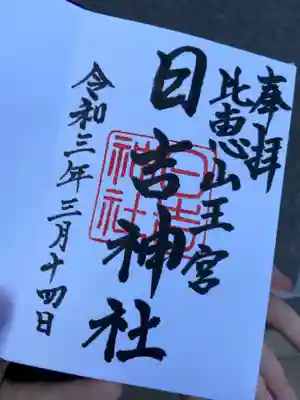 奉拝
比恵山王宮
日吉神社
日吉神社
令和三年三月十四日